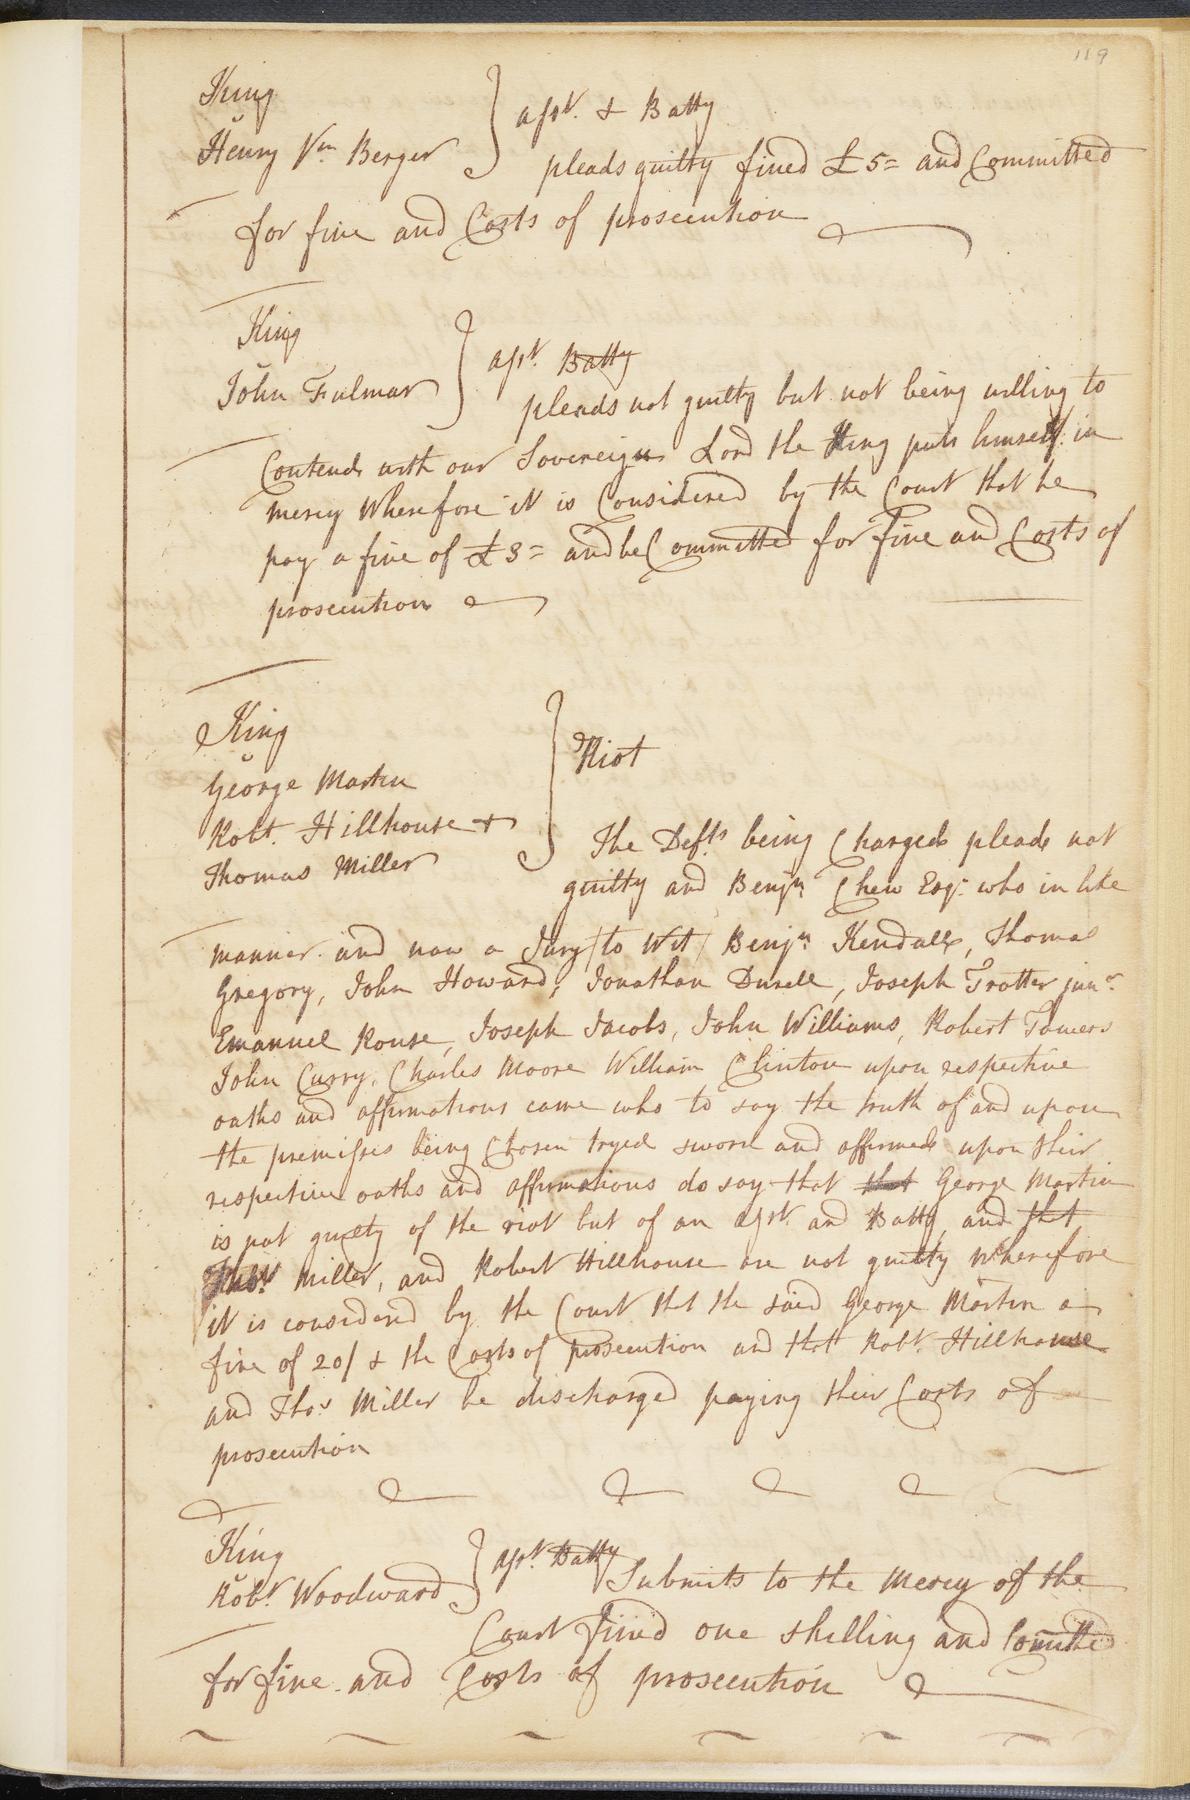 119
King
v
Henry Vn Berger } asst. & Batty
pleads guilty fined £5= and Committed
for fine and Costs of prosecution
King
v
John Fulmar } asst. Batty
pleads not guilty but not being willing to
Contend with our Sovereign Lord the King puts himself in
mercy Wherefore it is Considered by the Court that he
pay a fine of £3= and be Committed for fine and Costs of
prosecution
King
v
George Martin
Robt. Hillhouse &
Thomas Miller } Riot
The Defts being Charged plead not
guilty and Benjn Chew Esqr. who in like
manner and now a Jury /to Wit/ Benjn Kendall, Thomas
Gregory, John Howard, Jonathan Durell, Joseph Trotter junr.
Emanuel Rouse, Joseph Jacobs, John Williams, Robert Towers
John Curry, Charles Moore William Clinton upon respective
oaths and affirmations came who to say the truth of and upon
the premisses being Chosen tryed sworn and affirmed upon their
respective oaths and affirmations do say that that George Martin
is not guilty of the riot but of an asst. and Batty, and that
Thos. Miller, and Robert Hillhouse are not guilty Wherefore
it is considered by the Court that the said George Martin a
fine of 20/ & the Costs of prosecution and that Robt. Hillhouse
and Thos Miller be discharged paying their Costs of
prosecution
King
v
Robt. Woodward } asst. Batty Submits to the Mercy of the
Court fined one shilling and Comitted
for fine and Costs of prosecution